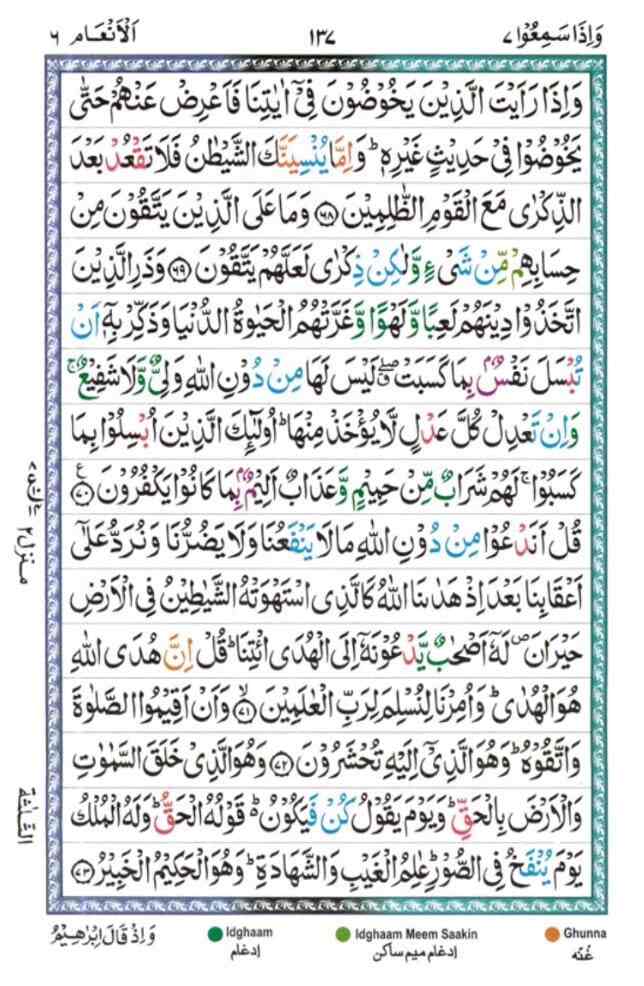 وَاِذَا سَمِعُوۡا ٧ ١٣٧ اَلۡاَنۡعَـام ٦
وَاِذَا رَاَيۡتَ الَّذِيۡنَ يَخُوۡضُوۡنَ فِىۡۤ اٰيٰتِنَا فَاَعۡرِضۡ عَنۡهُمۡ حَتّٰى
يَخُوۡضُوۡا فِىۡ حَدِيۡثٍ غَيۡرِهٖ‌ ؕ وَاِمَّا يُنۡسِيَنَّكَ الشَّيۡطٰنُ فَلَا تَقۡعُدۡ بَعۡدَ
الذِّكۡرٰى مَعَ الۡقَوۡمِ الظّٰلِمِيۡنَ ﴿٦٨﴾ وَمَا عَلَى الَّذِيۡنَ يَتَّقُوۡنَ مِنۡ
حِسَابِهِمۡ مِّنۡ شَىۡءٍ وَّلٰـكِنۡ ذِكۡرٰى لَعَلَّهُمۡ يَتَّقُوۡنَ ﴿٦٩﴾ وَذَرِ الَّذِيۡنَ
اتَّخَذُوۡا دِيۡنَهُمۡ لَعِبًا وَّلَهۡوًا وَّغَرَّتۡهُمُ الۡحَيٰوةُ الدُّنۡيَا وَذَكِّرۡ بِهٖۤ اَنۡ
تُبۡسَلَ نَفۡسٌ ۢ بِمَا كَسَبَتۡ ‌ۖ لَـيۡسَ لَهَا مِنۡ دُوۡنِ اللّٰهِ وَلِىٌّ وَّلَا شَفِيۡعٌ‌ ۚ
وَاِنۡ تَعۡدِلۡ كُلَّ عَدۡلٍ لَّا يُؤۡخَذۡ مِنۡهَا‌ ؕ اُولٰٓٮِٕكَ الَّذِيۡنَ اُبۡسِلُوۡا بِمَا
كَسَبُوۡا‌ ۚ لَهُمۡ شَرَابٌ مِّنۡ حَمِيۡمٍ وَّعَذَابٌ اَلِيۡمٌۢ بِمَا كَانُوۡا يَكۡفُرُوۡنَ ﴿٧٠﴾
قُلۡ اَنَدۡعُوۡا مِنۡ دُوۡنِ اللّٰهِ مَا لَا يَنۡفَعُنَا وَلَا يَضُرُّنَا وَنُرَدُّ عَلٰٓى
اَعۡقَابِنَا بَعۡدَ اِذۡ هَدٰٮنَا اللّٰهُ كَالَّذِى اسۡتَهۡوَتۡهُ الشَّيٰطِيۡنُ فِى الۡاَرۡضِ
حَيۡرَانَ ‌ۖ لَهٗۤ اَصۡحٰبٌ يَّدۡعُوۡنَهٗۤ اِلَى الۡهُدَى ائۡتِنَا ‌ؕ قُلۡ اِنَّ هُدَى اللّٰهِ
هُوَ الۡهُدٰى‌ ؕ وَاُمِرۡنَا لِنُسۡلِمَ لِرَبِّ الۡعٰلَمِيۡنَ ۙ‏﴿٧١﴾ وَاَنۡ اَقِيۡمُوا الصَّلٰوةَ
وَاتَّقُوۡهُ‌ ؕ وَهُوَ الَّذِىۡۤ اِلَيۡهِ تُحۡشَرُوۡنَ ﴿٧٢﴾ وَهُوَ الَّذِىۡ خَلَقَ السَّمٰوٰتِ
وَالۡاَرۡضَ بِالۡحَـقِّ‌ ؕ وَيَوۡمَ يَقُوۡلُ كُنۡ فَيَكُوۡنُ ؕ قَوۡلُهُ الۡحَـقُّ‌ ؕ وَلَهُ الۡمُلۡكُ
يَوۡمَ يُنۡفَخُ فِى الصُّوۡرِ‌ ؕ عٰلِمُ الۡغَيۡبِ وَالشَّهَادَةِ‌ ؕ وَهُوَ الۡحَكِيۡمُ الۡخَبِيۡرُ ﴿٧٣﴾
منزل ٢
الثلٰثة
وَاِذۡ قَالَ اِبۡرٰهِيۡمُ
Idghaam Idghaam Meem Saakin Ghunna
إدغام إدغام ميم ساكن غُنّه